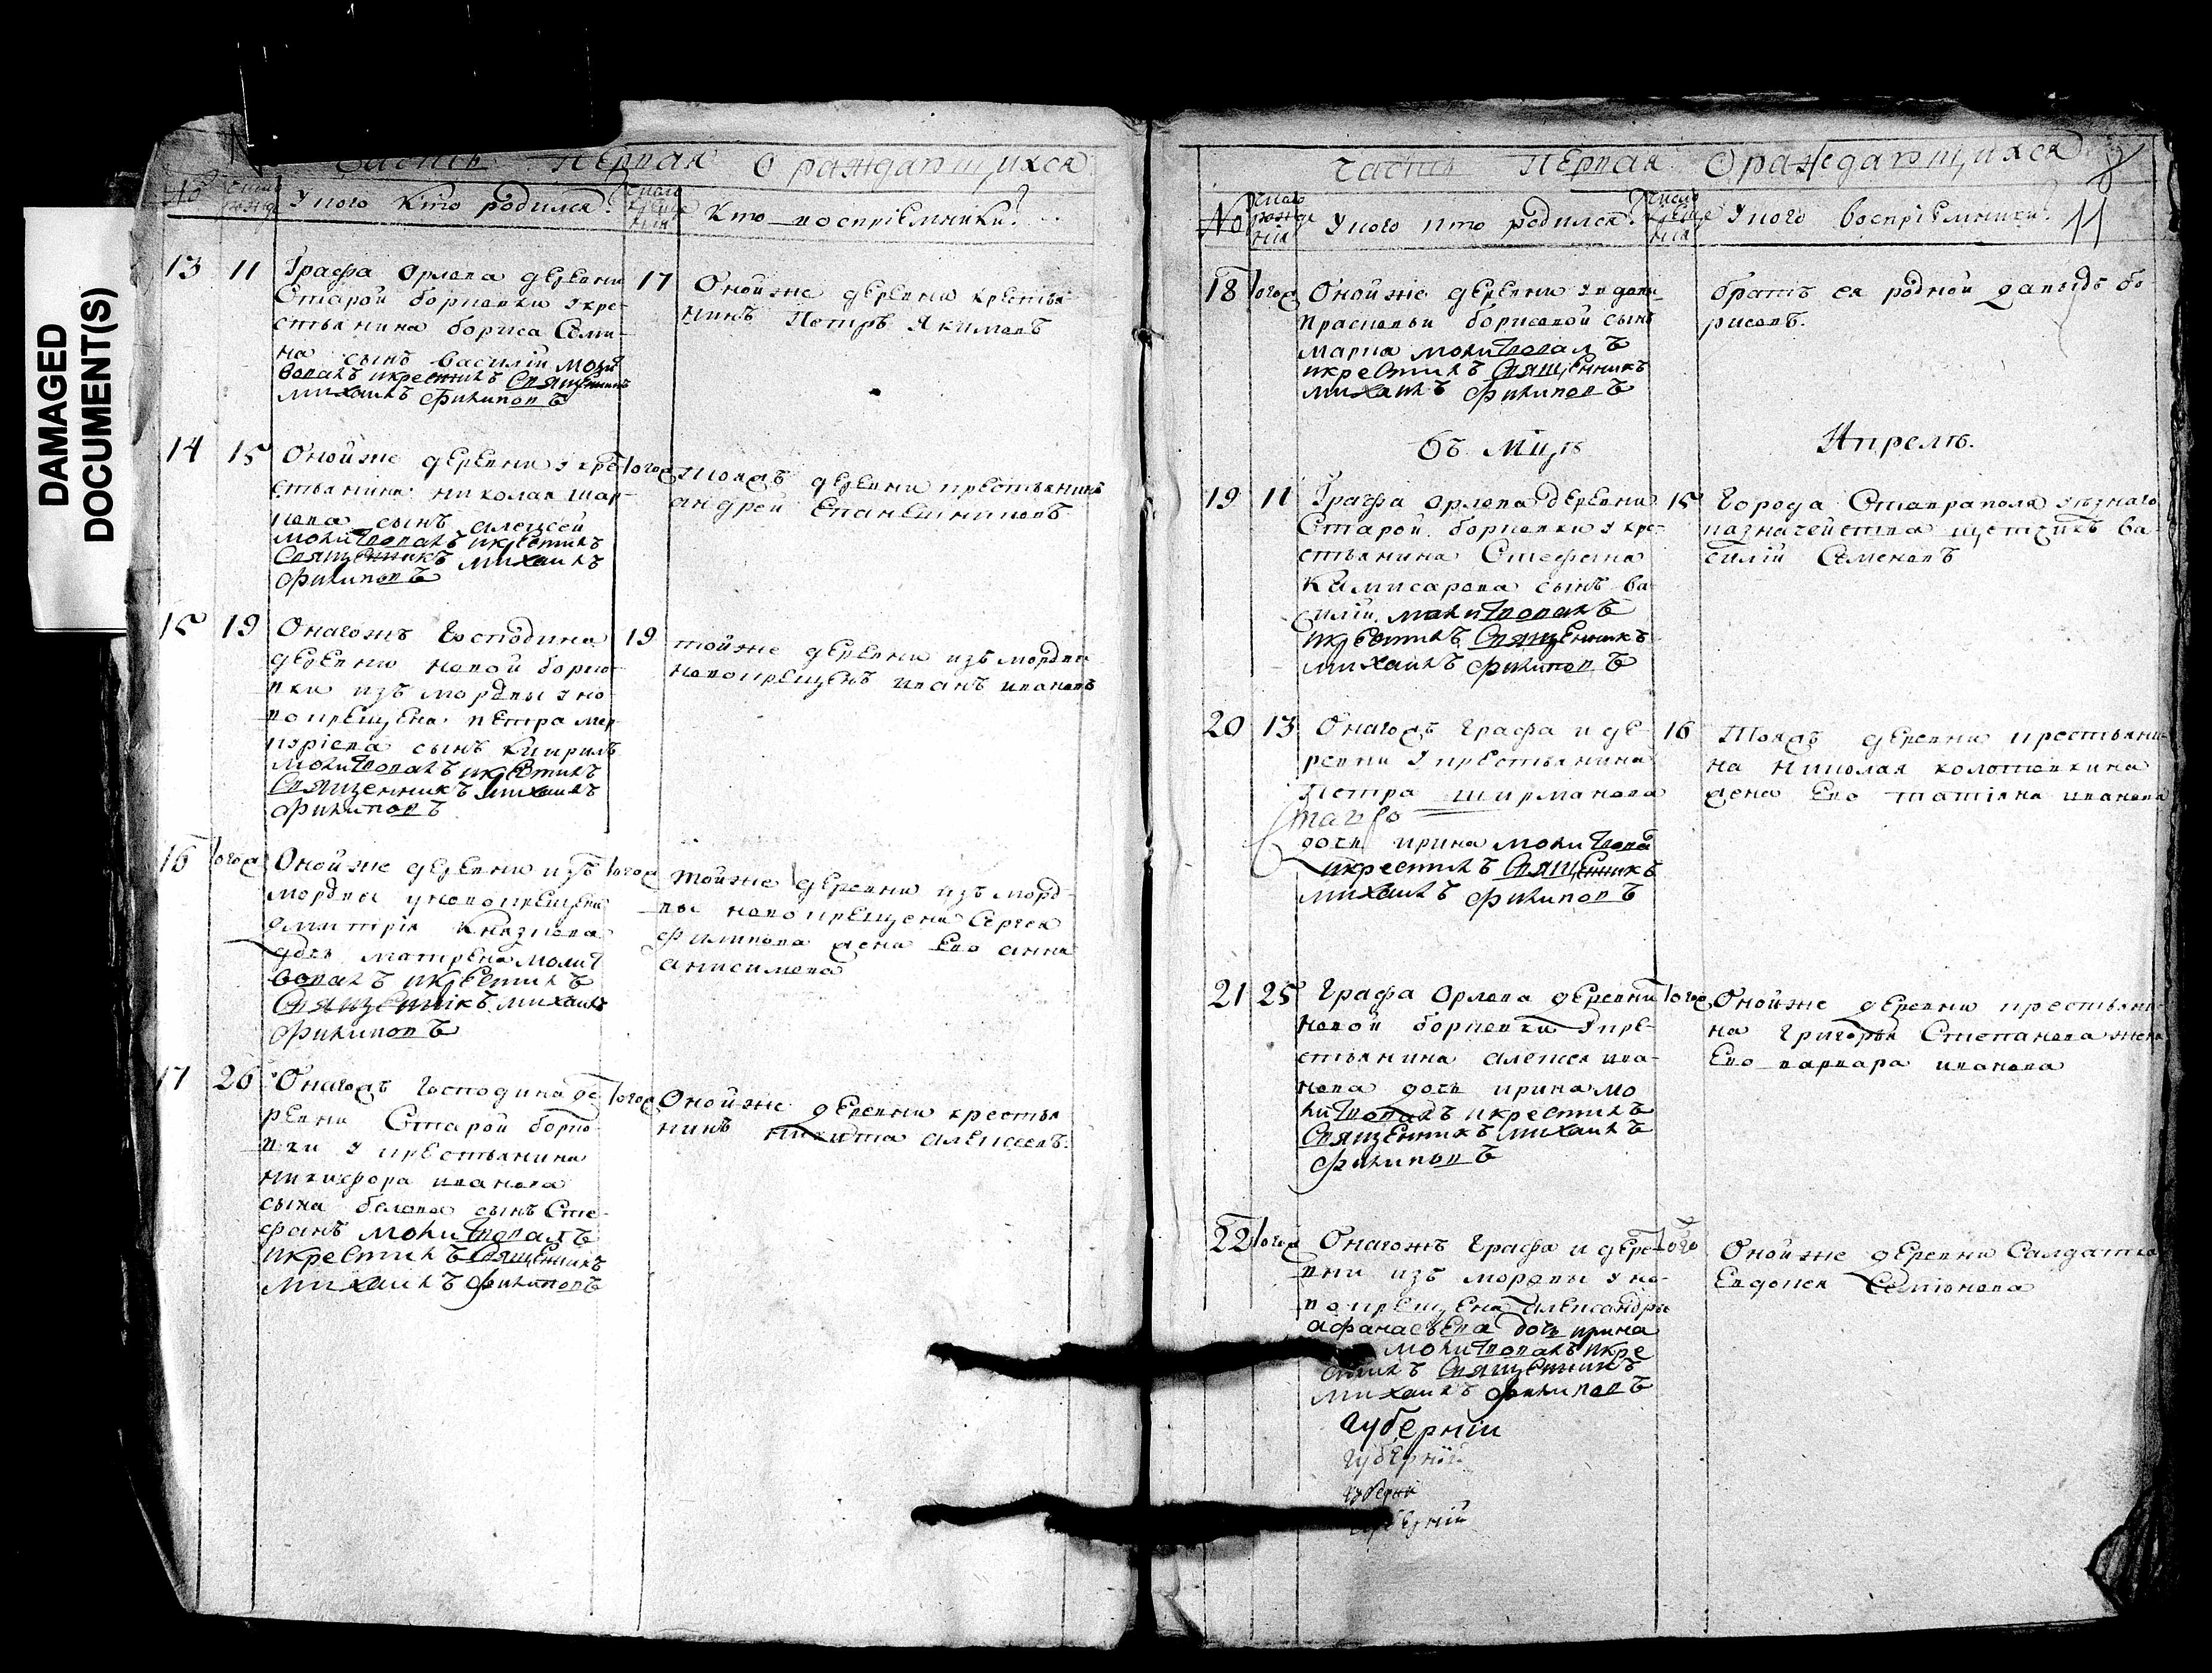 DAMAGED
DOCUMENT(S)
Часть первая О раждающихся
No число рожде
У кого кто родился?
число креще ния
Кто восприемники?
13 11 Графа Орлова деревни
Старой борковки укре-
стьянина бориса Семи-
на сынъ василiй моли
вовалъ икрестилъ Священникъ
михаилъ филиповъ
17 Оной же деревни крестья
нинъ Петръ Якимовъ
14 15 Оной же деревни укре
стьянина николая шар-
пова сынъ алексей
молитвовалъ икрестилъ
Священникъ михаилъ
филиповъ
тогож Тояжъ деревни крестьянинъ
андрей Епанешниковъ
15 19 Онагожъ Господина
деревни новой борко-
вки изъ мордвы уно-
вокрещена петра мер-
курiева сынъ Кирилъ
молитвовалъ икрестилъ
Священникъ михаилъ
филиповъ
19 тойже деревни изъ мордвы
новокрещенъ иванъ ивановъ
16 тогож Оной же деревни изъ
мордвы уновокрещена
дмитрiя Князкова
дочь матрена молит
вовалъ икрестилъ
Священнiкъ михаилъ
филиповъ
тогож тойже деревни изъ морд-
вы новокрещена Сергея
филипова жена Ево анна
анисимова
17 26 Онагожъ Господина де
ревни Старой борко-
вки у крестьянина
никифора иванова
сына белова сынъ Сте-
фанъ молитвовалъ
икрестилъ Священникъ
михаилъ филиповъ
тогож Оной же деревни крестья
нинъ никита алексеевъ.
Часть первая О раждающихся
11
No число рожде нiя
У кого кто родился?
число креще нiя
У кого восприемники?
18 тогож Оной же деревни увдовы
прасковьи борисовой сынъ
марка молитвовалъ
икрестилъ Священникъ
михаилъ филиповъ
братъ ея родной давыдъ бо-
рисовъ.
Въ Мцѣ Апрелѣ.
19 11 Графа Орлова деревни
Старой борковки укре-
стьянина Стефана
Камисарова сынъ ва
силiй молитвовалъ
икрестилъ Священникъ
михаилъ филиповъ
15 Города Ставраполя уѣзнаго
казначейства щетчикъ ва-
силiй Семеновъ
20 13 Онагожъ Графа и де-
ревни у крестьянина
Петра Ширманова
дочь ирина молитвова
икрестилъ Священникъ
михаилъ филиповъ
16 Тояжъ деревни крестьяни-
на николая колотовкина
жена Ево татiяна иванова
21 25 Графа Орлова деревни
новой борковки укре-
стьянина алексея ива-
нова дочь ирина мо
литвовалъ икрестилъ
Священникъ михаилъ
филиповъ
тогож Оной же деревни крестьяни
на Григорья Степанова жена
Ево варвара иванова
22 тогож Онагожъ Графа и дере-
вни изъ мордвы уно-
вокрещена александры
афанасьева дочь ирина
молитвовалъ икре
стилъ Священникъ
михаилъ филиповъ
тогож Оной же деревни Салдатка
Евдокея Семiонова
Губернiи
губернiи
губернiи